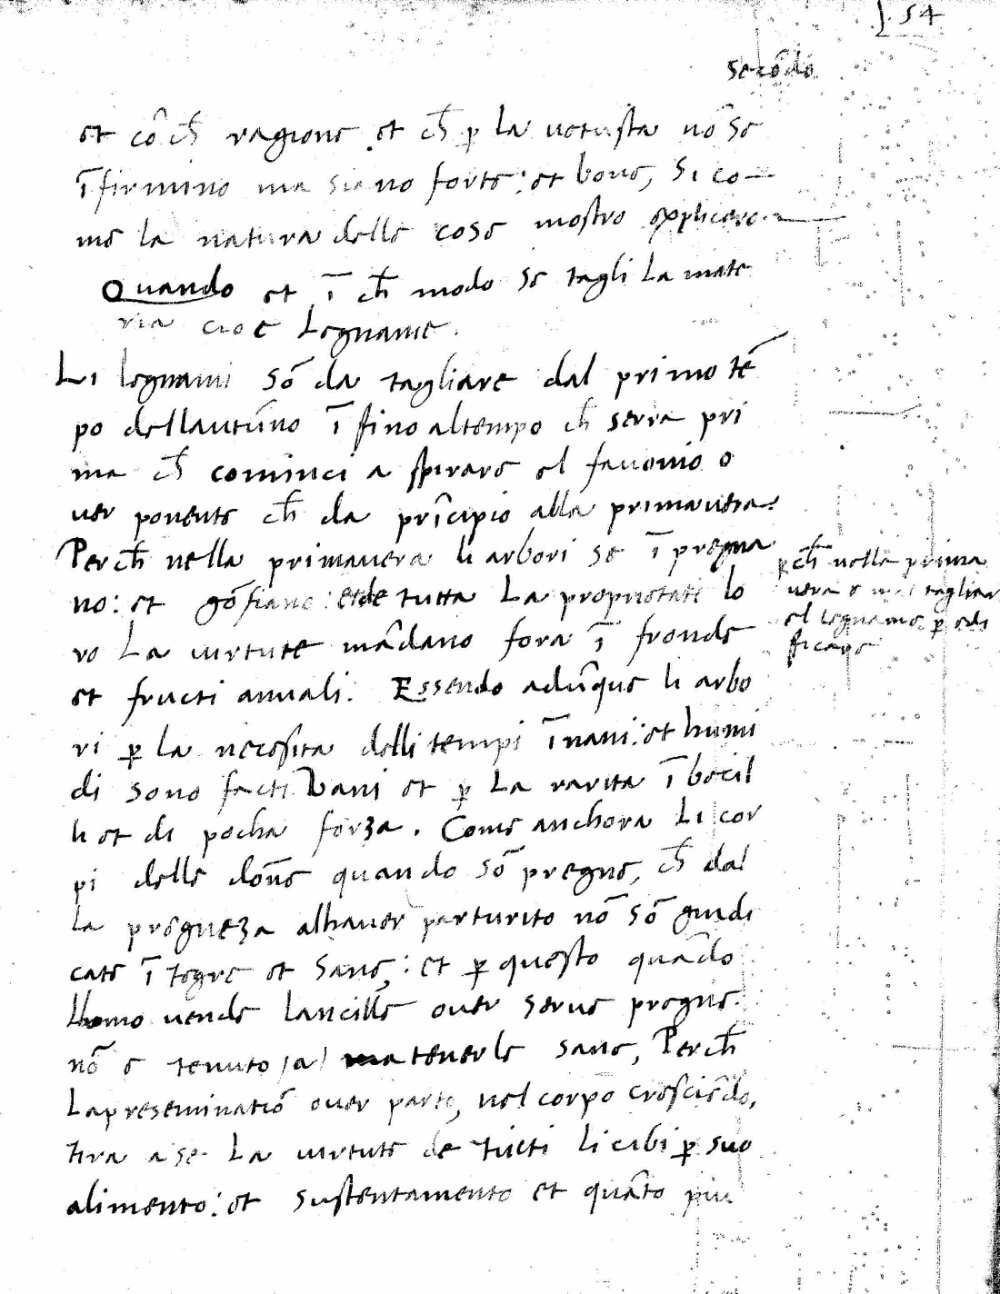 f. 54
secōdo
et cō ch̄ ragione et ch̄ p̱ la uetusta nō se
ī firmino ma siano forte: et bone, Si co-
me la natura delle cose mostro explicare.
Quando et ī ch̄ modo se tagli La mate
ria cioe Legname.
Li legnami sō da tagliare dal primo tē
po dellautūno ī fino altempo ch̄ serra pri
ma ch̄ cominci a spirare el fauonio o
uer ponente ch̄ da prīcipio alla primauera.
Perch̄ nella primauera li arbori se ī pregna
no: et gōfiano: et de tutta La proprietate lo
ro La uirtute mādano fora ī fronde
et fructi annuali. Essendo adūque li arbo
ri p̱ la necessita delli tempi īnani: et humi
di sono facti Vani et p̱ La rarita ī becil
li et di pocha forza. Come anchora Li cor
pi delle dōne quando sō pregne, ch̄ dal
la pregneza alhauer parturito nō sō guidi
cate ī tegre et Sane,: et p̱ questo quādo
lhomo uende lancille ouer serue pregne.
nō e tenuto |a| matenerle sane, Perch̄
Lapreseminatiō ouer parto, nel corpo cresciēdo,
tira a se La uirtute de tucti li cibi p̱ suo
alimento: et sustentamento et quāto piu
p̱ch̄ nella prima
uera e mal tagliar
el legname p̱ edi
ficare